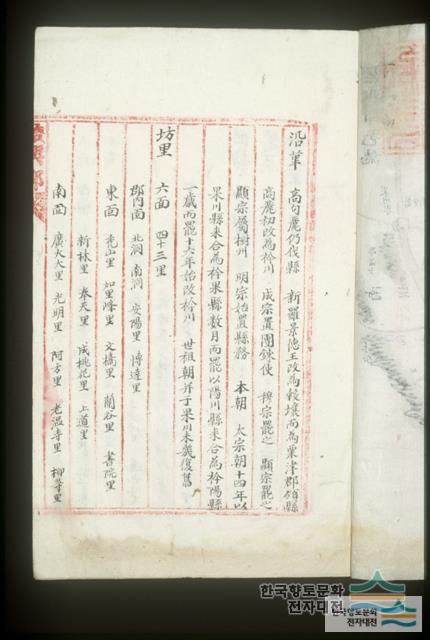 沿革 高句麗仍伐縣 新羅景德王改爲穀壤而爲栗津郡領縣
高麗初改爲衿川 成宗置團鍊使 穆宗罷之 顯宗罷之
顯宗屬樹州 明宗始置縣務 本朝 太宗朝十四年以
果川縣來合爲衿果縣數月而罷以陽川縣來合爲衿陽縣
一歲而罷十六年始改衿川 世祖朝并于果川未幾復舊
坊里 六面 四十三里
郡內面 北洞 南洞 安陽里 博達里
東面 禿山里 加里峰里 文橋里 蘭谷里 書院里
新林里 奉天里 成桃花里 上道里
南面 廣大大里 光明里 阿方里 老溫寺里 柳等里
한국향토문화
전자대전
한국향토문화
전자대전